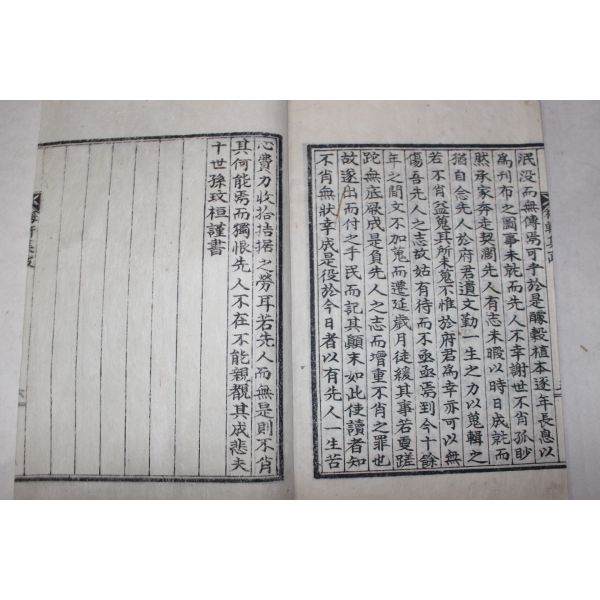 泯没而無傳焉可乎於是醵穀植本逐年長息以
為刊布之圖事未就而先人不幸謝世不肖孤眇
然承家奔走契濶先人有志未暇以時日成就而
猶自念先人於府君遺文勤一生之力以蒐輯之
若不肖益蒐其所未蒐不惟於府君為幸亦可以無
傷吾先人之志故姑有待而不亟亟焉到今十餘
年之間文不加蒐而遷延歲月徒緩其事若重蹉
跎無底厥成是負先人之志而增重不肖之罪也
故遂出而付之手民而記其顛末如此使讀者知
不肖無狀幸成是役於今日者以有先人一生苦
心費力收拾拮据之勞耳若先人而無是則不肖
其何能焉而獨恨先人不在不能親覩其成悲夫
十世孫玟桓謹書